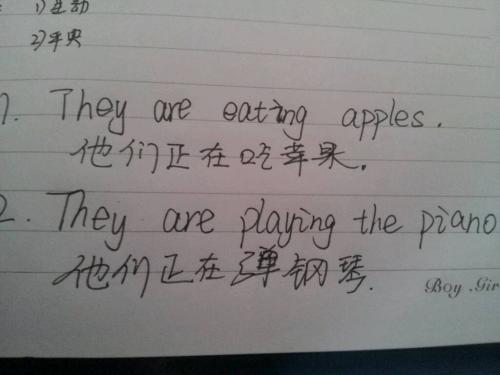 1)互动
2)平央
1. They are eating apples.
他们正在吃苹果.
2. They are playing the piano
他们正在弹钢琴.
Boy.Gir